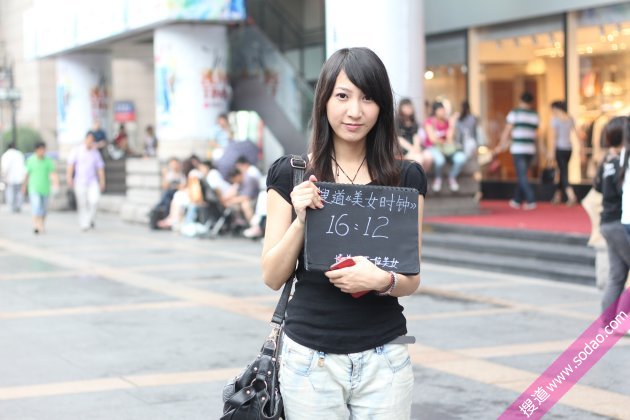 搜道《美女时钟》
16:12
美女
搜道 www.sodao.com